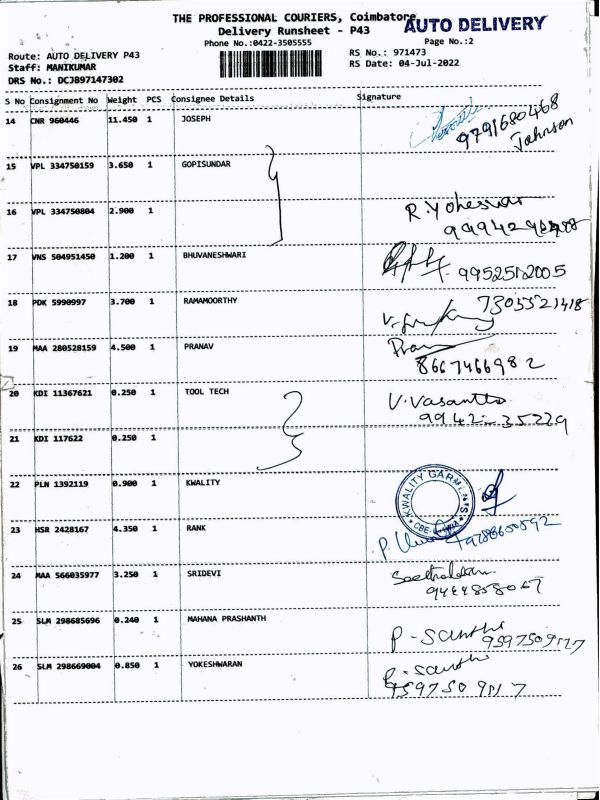 THE PROFESSIONAL COURIERS, Coimbatore
AUTO DELIVERY
Delivery Runsheet - P43
Phone No.:0422-3505555
Page No.:2
Route: AUTO DELIVERY P43
RS No.: 971473
Staff: MANIKUMAR
RS Date: 04-Jul-2022
DRS No.: DCJB97147302
S No Consignment No Weight PCS Consignee Details Signature
14 CNR 960446 11.450 1 JOSEPH
9791680468
Johnson
15 VPL 334750159 3.650 1 GOPISUNDAR
16 VPL 334750804 2.900 1
R.Yoheswar
17 VNS 504951450 1.200 1 BHUVANESHWARI
9952512005
18 PDK 5990997 3.700 1 RAMAMOORTHY 7305521418
19 MAA 280528159 4.500 1 PRANAV
8667466982
20 KDI 11367621 0.250 1 TOOL TECH V.Vasantha
9942-35229
21 KDI 117622 0.250 1
22 PLN 1392119 0.900 1 KWALITY
KWALITY GARMENTS
23 HSR 2428167 4.350 1 RANK
24 MAA 566035977 3.250 1 SRIDEVI
25 SLM 298685696 0.240 1 MAHANA PRASHANTH P-Santhi
9597509117
26 SLM 298669004 0.850 1 YOKESHWARAN P-Santhi
9597509117